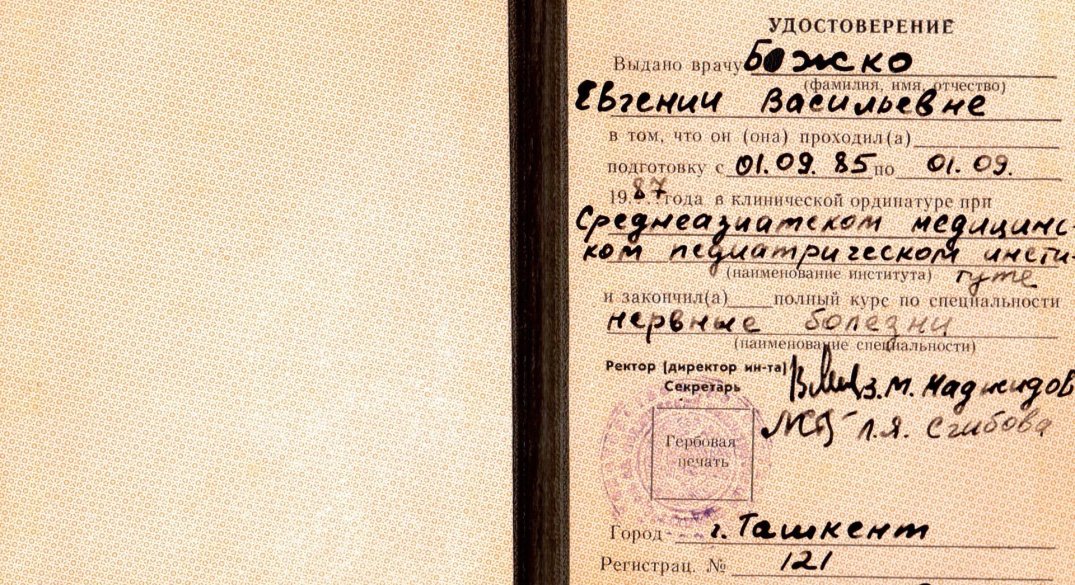 УДОСТОВЕРЕНИЕ
Выдано врачу Божко
(фамилия, имя, отчество)
Евгении Васильевне
в том, что он (она) проходил(а)
подготовку с 01.09. 85 по 01.09.
1987 года в клинической ординатуре при
Среднеазиатском медицинс-
ком педиатрическом инсти-
(наименование института) туте
и закончил(а) полный курс по специальности
нервные болезни
(наименование специальности)
Ректор (директор ин-та) З.М. Маджидов
Секретарь
Л.Я.
Гербовая
печать
Город г. Ташкент
Регистрац. № 121